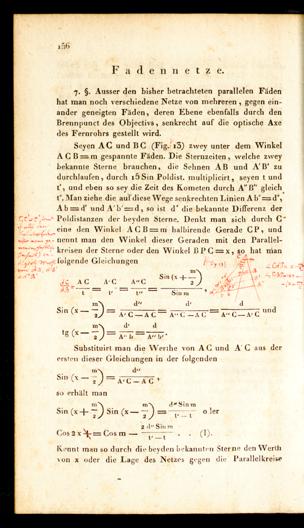 156
Fadennetze.
7. §. Ausser den bisher betrachteten parallelen Fäden
hat man noch verschiedene Netze von mehreren, gegen ein-
ander geneigten Fäden, deren Ebene ebenfalls durch den
Brennpunct des Objectivs, senkrecht auf die optische Axe
des Fernrohrs gestellt wird.
Seyen A C und B C (Fig. 13) zwey unter dem Winkel
A C B = m gespannte Fäden. Die Sternzeiten, welche zwey
bekannte Sterne brauchen, die Sehnen A B und A' B' zu
durchlaufen, durch 15 Sin Poldist. multiplicirt, seyen t und
t', und eben so sey die Zeit des Kometen durch A'' B'' gleich
t''. Man ziehe die auf diese Wege senkrechten Linien A b' = d',
A b = d' und A' b' = d, so ist d' die bekannte Differenz der
Poldistanzen der beyden Sterne. Denkt man sich durch C
eine den Winkel A C B = m halbirende Gerade C P, und
nennt man den Winkel dieser Geraden mit den Parallel-
kreisen der Sterne oder den Winkel B P C = x, so hat man
folgende Gleichungen
A C / t = A' C / t' = A'' C / t'' = Sin (x + m/2) / Sin m,
Sin (x — m/2) = d'' / A' C — A C = d' / A'' C — A C = d / A'' C — A' C und
tg (x — m/2) = d' / A'' b = d / A'' b'.
Substituirt man die Werthe von A C und A' C aus der
ersten dieser Gleichungen in der folgenden
Sin (x — m/2) = d'' / A' C — A C,
so erhält man
Sin (x + m/2) Sin (x — m/2) = d'' Sin m / t' — t oder
Cos 2 x = Cos m — 2 d'' Sin m / t' — t . . (I).
Kennt man so durch die beyden bekannten Sterne den Werth
von x oder die Lage des Netzes gegen die Parallelkreise